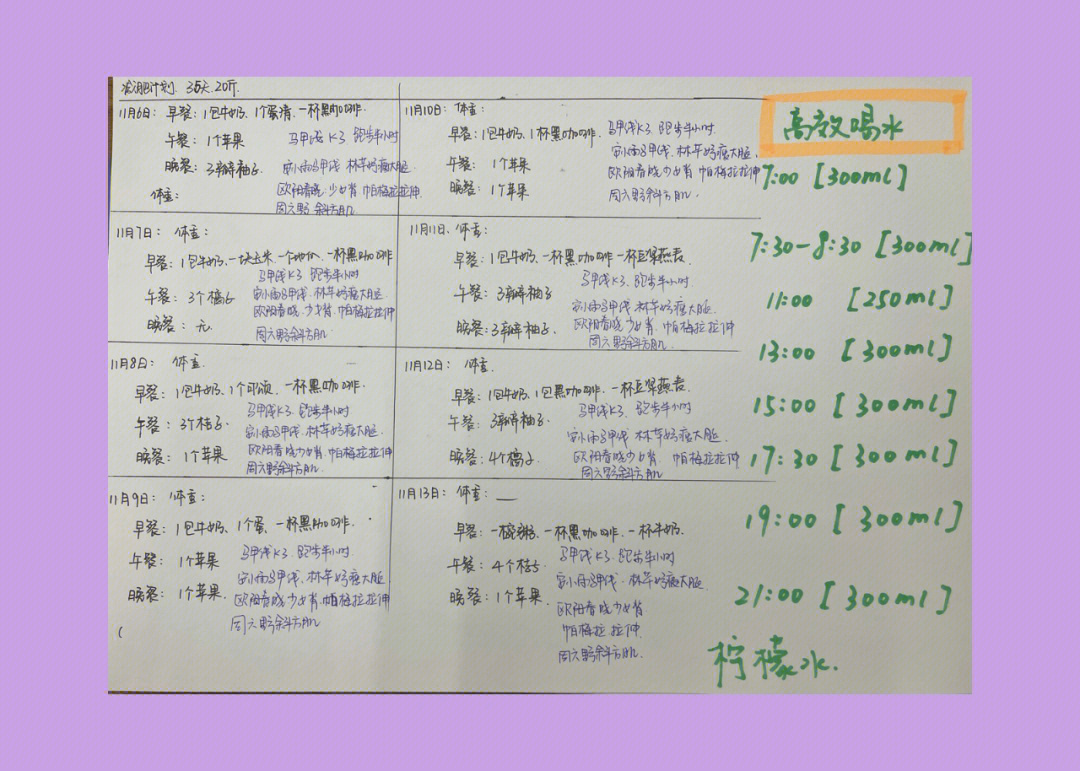 减肥计划. 35天. 20斤
11月6日: 早餐: 1包牛奶. 1个蛋清. 一杯黑咖啡.
午餐: 1个苹果
马甲线K3. 跑步半小时
晚餐: 3瓣柚子.
马甲线. 林芊妤瘦大腿.
欧阳春晓. 少女背. 帕梅拉拉伸
体重:
周六野斜方肌
11月7日: 体重:
早餐: 1包牛奶. 一块玉米. 一个 一杯黑咖啡
马甲线K3 跑步半小时
午餐: 3个橘子
马甲线. 林芊妤瘦大腿.
欧阳春晓. 少女背. 帕梅拉拉伸
晚餐: 无.
周六野斜方肌
11月8日: 体重.
早餐: 1包牛奶. 1个可颂. 一杯黑咖啡.
马甲线K3. 跑步半小时
午餐: 3个桔子.
马甲线. 林芊妤瘦大腿.
欧阳春晓少女背. 帕梅拉拉伸
晚餐: 1个苹果
周六野斜方肌
11月9日: 体重:
早餐: 1包牛奶. 1个蛋. 一杯黑咖啡.
午餐: 1个苹果
马甲线K3. 跑步半小时.
马甲线. 林芊妤瘦大腿
晚餐: 1个苹果.
欧阳春晓少女背. 帕梅拉拉伸
周六野斜方肌
11月10日: 体重:
早餐: 1包牛奶. 1杯黑咖啡.
马甲线K3. 跑步半小时.
马甲线. 林芊妤瘦大腿.
午餐: 1个苹果
欧阳春晓少女背 帕梅拉拉伸
晚餐: 1个苹果
周六野斜方肌.
11月11日. 体重:
早餐: 1包牛奶. 一杯黑咖啡 一杯豆浆燕麦
马甲线K3. 跑步半小时
午餐: 3瓣柚子
马甲线. 林芊妤瘦大腿.
欧阳春晓少女背. 帕梅拉拉伸
晚餐: 3瓣柚子.
周六野斜方肌.
11月12日: 体重.
早餐: 1包牛奶. 1包黑咖啡. 一杯豆浆燕麦
马甲线K3. 跑步半小时
午餐: 3瓣柚子.
马甲线 林芊妤瘦大腿.
晚餐: 4个橘子.
欧阳春晓少女背. 帕梅拉拉伸
周六野斜方肌
11月13日: 体重:
早餐: 一碗粥. 一杯黑咖啡. 一杯牛奶.
马甲线K3. 跑步半小时
午餐: 4个桔子
马甲线. 林芊妤瘦大腿
晚餐: 1个苹果.
欧阳春晓少女背
帕梅拉 拉伸
周六野斜方肌.
高效喝水
7:00 [300ml]
7:30-8:30 [300ml]
11:00 [250ml]
13:00 [300ml]
15:00 [300ml]
17:30 [300ml]
19:00 [300ml]
21:00 [300ml]
柠檬水.